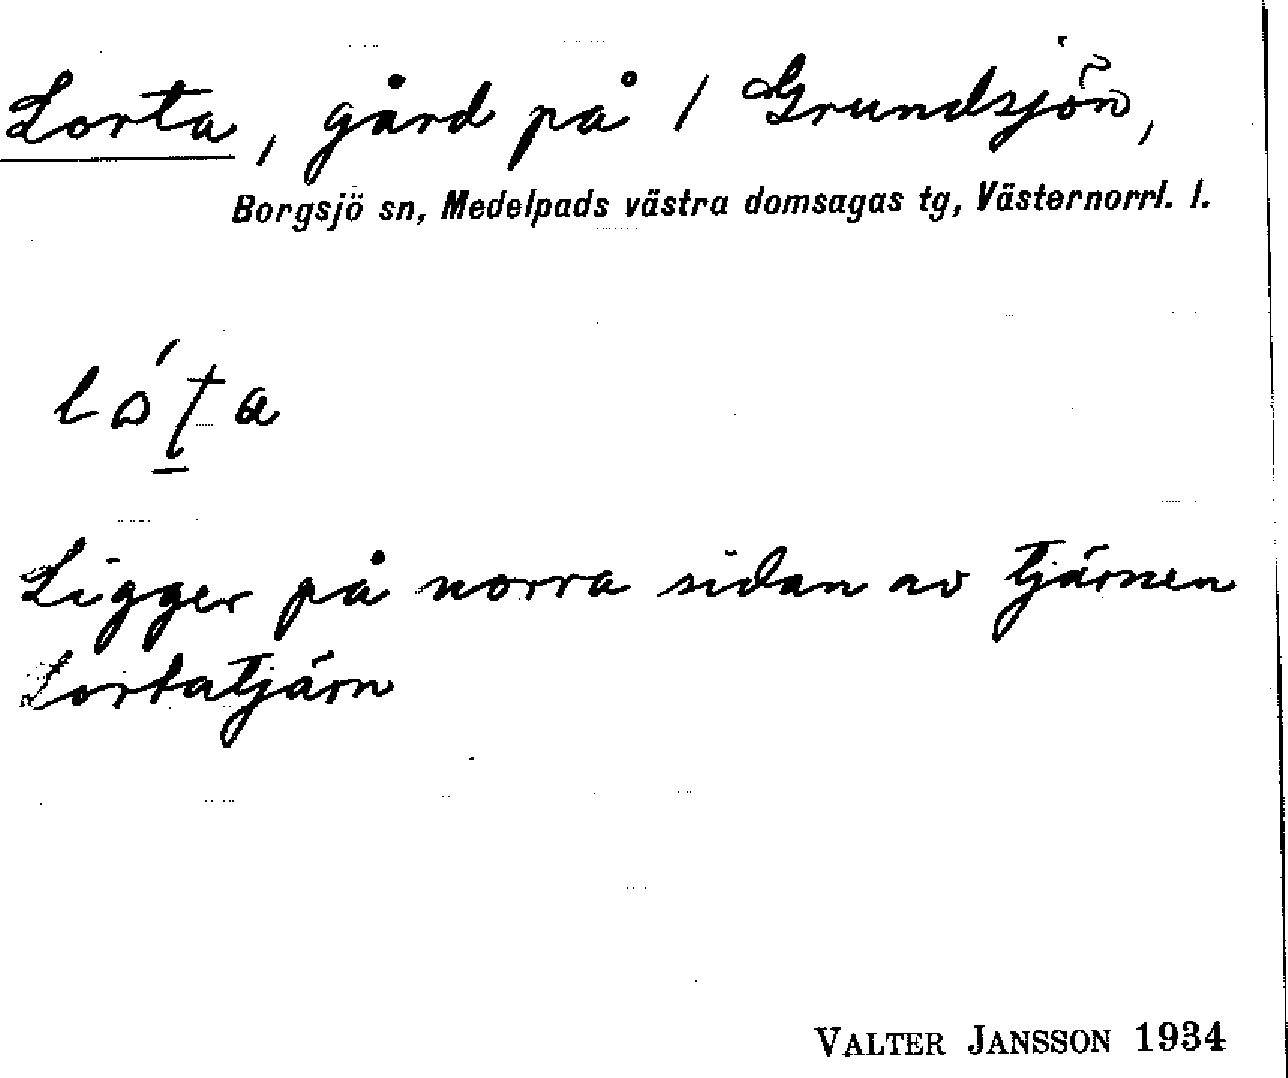 Lorta, gård på 1 Grundsjön,
Borgsjö sn, Medelpads västra domsagas tg, Västernorrl. l.
Ligger på norra sidan av tjärnen
Lortatjärn
VALTER JANSSON 1934